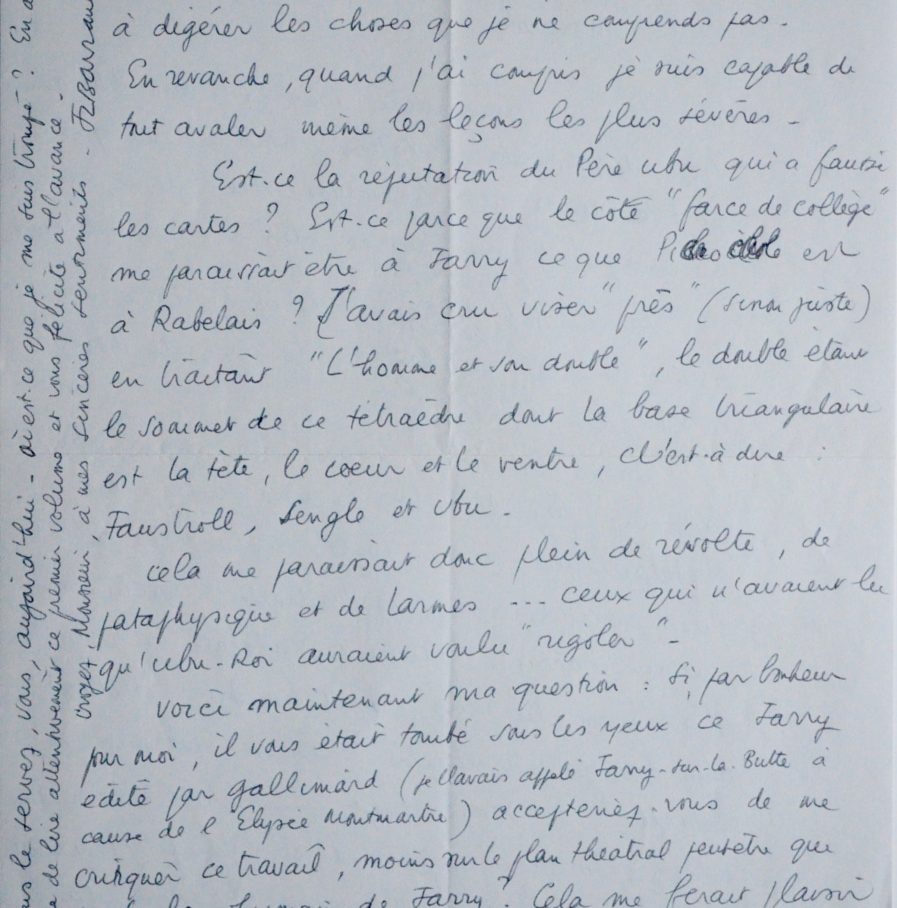 à digérer les choses que je ne comprends pas.
En revanche, quand j'ai compris je suis capable de
tout avaler même les leçons les plus sévères -
Est-ce la réputation du Père Ubu qui a faussé
les cartes ? Est-ce parce que le côté "farce de collège"
me paraissait être à Jarry ce que est
à Rabelais ? J'avais cru viser "près" (sinon juste)
en traitant "L'homme et son double", le double étant
le sommet de ce tétraèdre dont la base triangulaire
est la tête, le coeur et le ventre, c'est-à-dire :
Faustroll, Sengle et Ubu.
Cela me paraissait donc plein de révolte, de
pataphysique et de larmes ... ceux qui n'avaient lu
qu'Ubu-Roi auraient voulu "rigoler" -
Voici maintenant ma question : Si, par bonheur
pour moi, il vous était tombé sous les yeux ce Jarry
édité par Gallimard (je l'avais appelé Jarry-sur-la-Butte à
cause de l'Elysée Montmartre) accepteriez-vous de me
critiquer ce travail, moins sur le plan théâtral peutêtre que
de Jarry ? Cela me ferait plaisir
le servez, vous, aujourd'hui - où est-ce que je me suis trompé ? En
de lire attentivement ce premier volume et vous félicite à l'avance.
Croyez, Monsieur, à mes sincères sentiments - JLBarrau